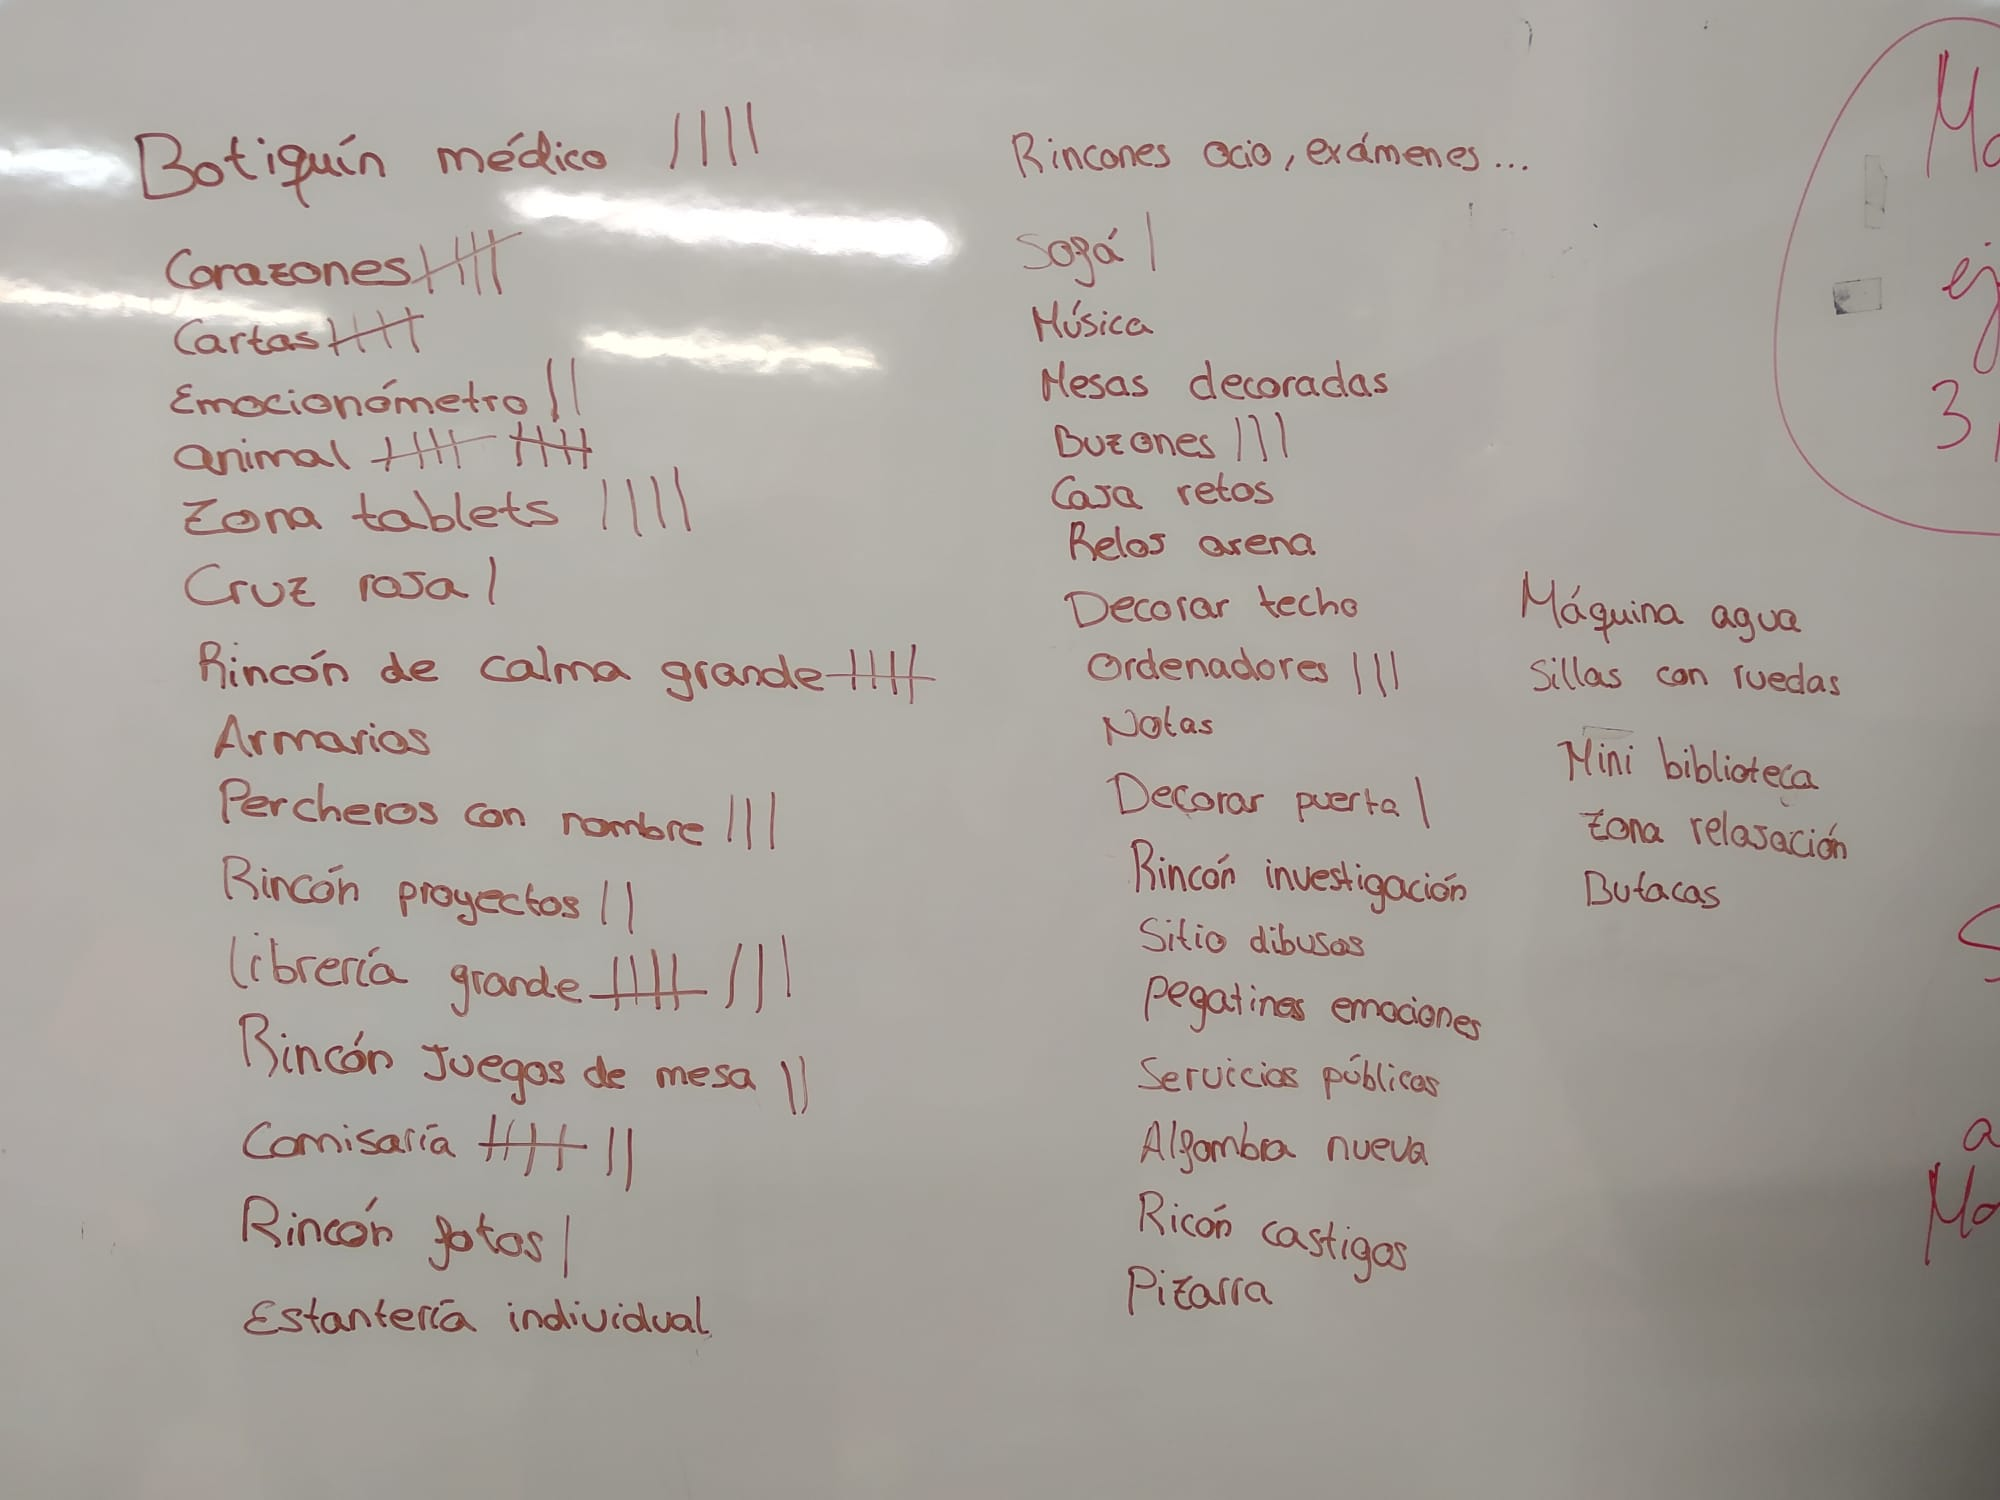 Botiquín médico ||||
Corazones ||||
Cartas ||||
Emocionómetro ||
animal |||| ||||
Zona tablets ||||
Cruz roja |
Rincón de calma grande ||||
Armarios
Percheros con nombre |||
Rincón proyectos ||
Librería grande |||| |||
Rincón Juegos de mesa ||
Comisaría |||| ||
Rincón fotos |
Estantería individual
Rincones ocio, exámenes...
Sofá |
Música
Mesas decoradas
Buzones |||
Caja retos
Relos arena
Decorar techo
Ordenadores |||
Notas
Decorar puerta |
Rincón investigación
Sitio dibujos
Pegatinas emociones
Servicios públicos
Alfombra nueva
Ricón castigos
Pizarra
Máquina agua
Sillas con ruedas
Mini biblioteca
Zona relajación
Butacas
3
a